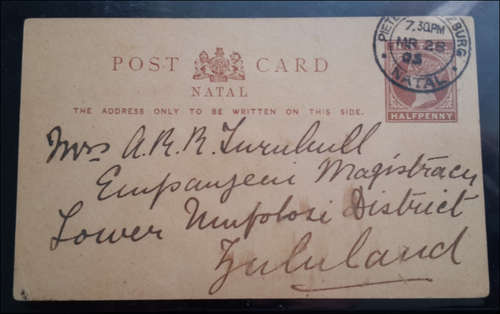 POST CARD
NATAL
THE ADDRESS ONLY TO BE WRITTEN ON THIS SIDE.
PIETERMARITZBURG
7.30PM
MR 28
03
NATAL
HALFPENNY
Mrs A.R.R. Turnbull
Empangeni Magistracy
Lower Umfolosi District
Zululand